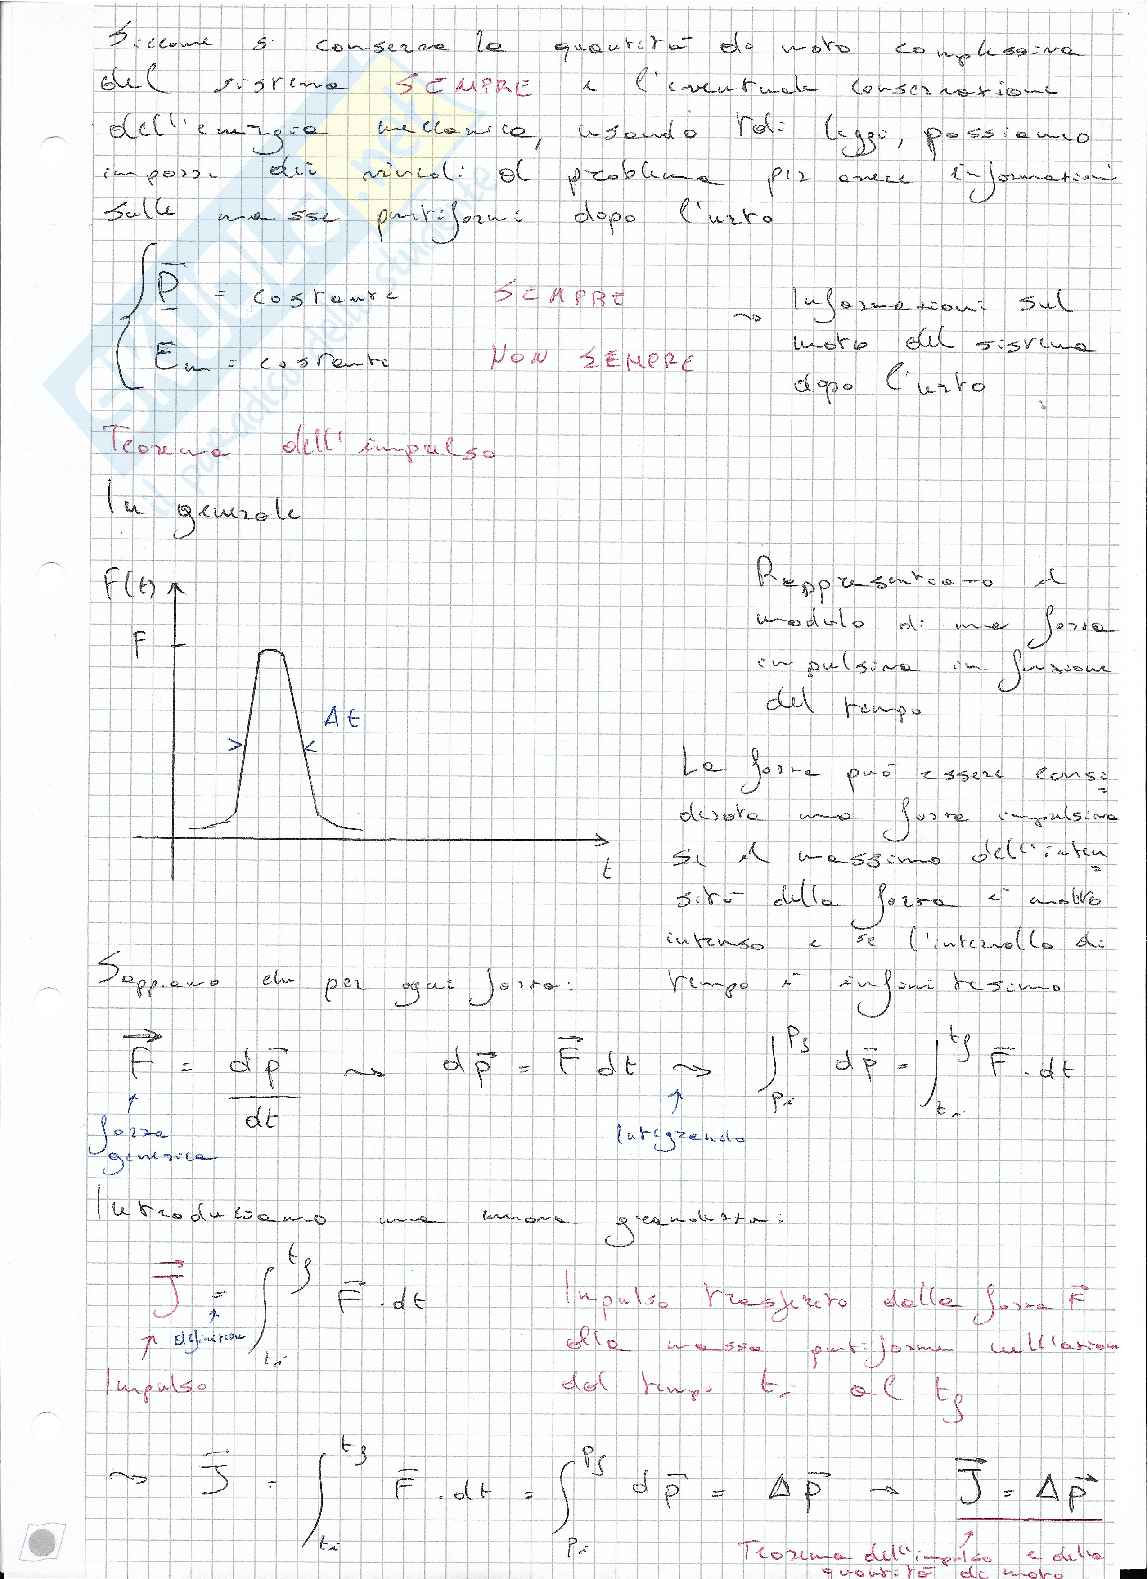 Siccome si conserva la quantità di moto complessiva
del sistema SEMPRE e l'eventuale conservazione
dell'energia meccanica, usando tali leggi, possiamo
imporre dei vincoli al problema per avere informazioni
sulle masse puntiformi dopo l'urto
P = costante SEMPRE
Em = costante NON SEMPRE
→ Informazioni sul
moto del sistema
dopo l'urto
Teorema dell'impulso
In generale
F(t)
F
Δt
t
Rappresentiamo il
modulo di una forza
impulsiva in funzione
del tempo
La forza può essere consi
derata una forza impulsiva
se il massimo dell'inten
sità della forza è molto
intenso e se l'intervallo di
tempo è infinitesimo
Sappiamo che per ogni forza:
F⃗ = dp⃗/dt → dp⃗ = F⃗ dt → ∫_{pi}^{pf} dp⃗ = ∫_{ti}^{tf} F⃗ · dt
forza
generica
Integrando
Introduciamo una nuova grandezza:
J⃗ = ∫_{ti}^{tf} F⃗ · dt
definizione
Impulso
Impulso trasferito dalla forza F⃗
alla massa puntiforme nell'azione
dal tempo ti al tf
→ J⃗ = ∫_{ti}^{tf} F⃗ · dt = ∫_{pi}^{pf} dp⃗ = Δp⃗ → J⃗ = Δp⃗
Teorema dell'impulso e della
quantità di moto